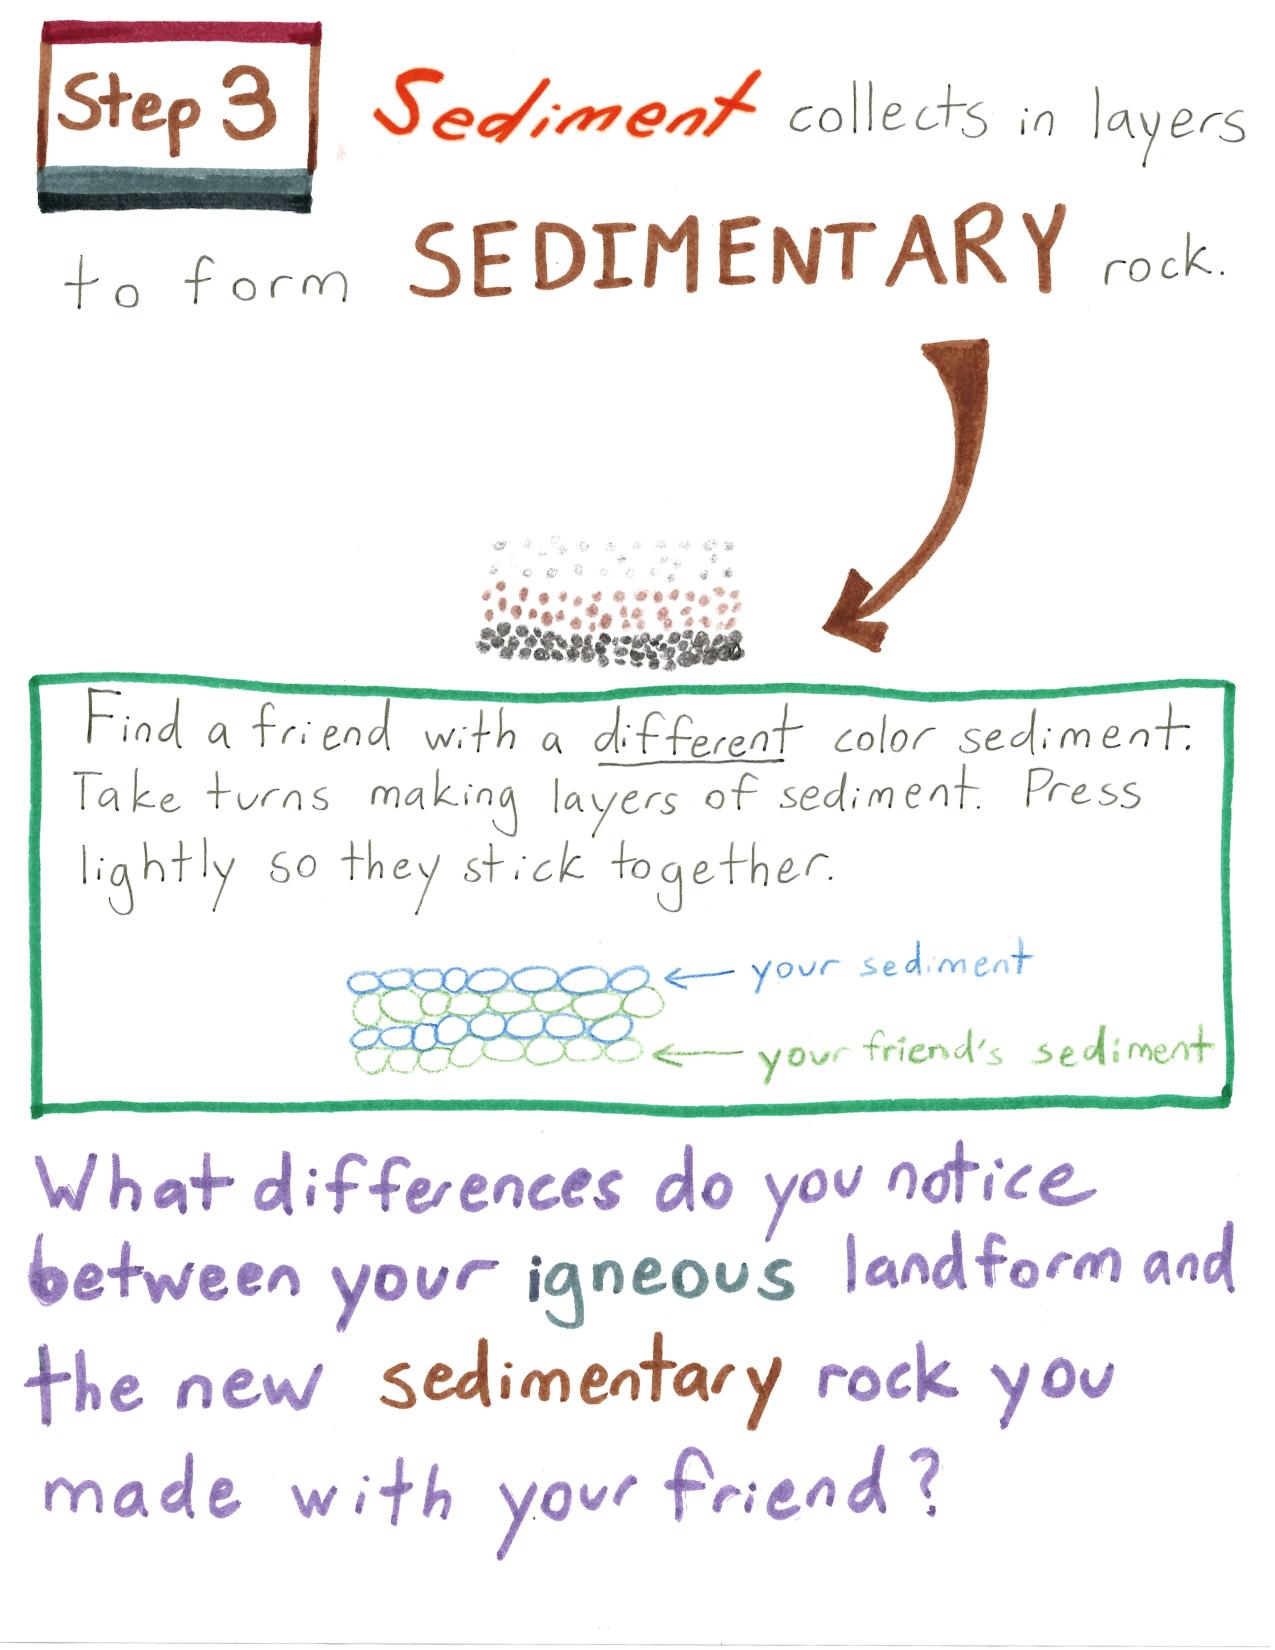 Step 3
Sediment collects in layers
to form SEDIMENTARY rock.
Find a friend with a different color sediment.
Take turns making layers of sediment. Press
lightly so they stick together.
your sediment
your friend's sediment
What differences do you notice
between your igneous landform and
the new sedimentary rock you
made with your friend?